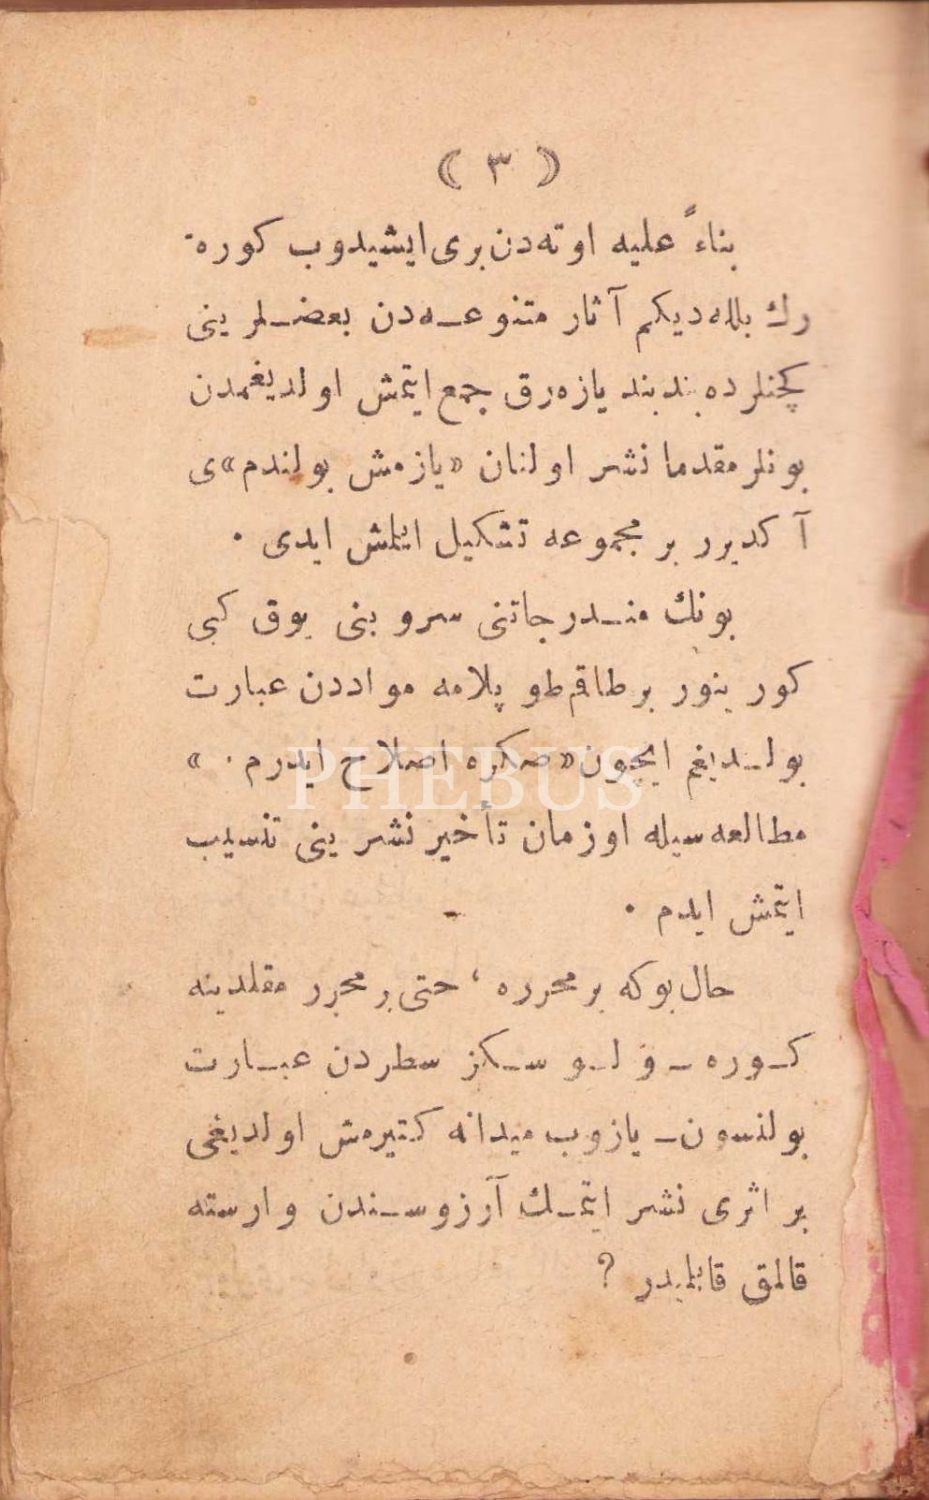 ( ٣ )
بناءً عليه اوته‌دن بری ایشیدوب كوره-
رك بلله‌دیكم آثار متنوعـه‌دن بعضـلرینی
كچنلرده بند بند یازه‌رق جمع ایتمش اولدیغمدن
بونلر مقدما نشر اولنان «یازمش بولندم»ی
آكدیرر بر مجموعه تشكیل ایلمش ایدی .
بونك منـدرجاتنی سروبنی یوق كبی
كورینور بر طاقم طوپلامه مواددن عبارت
بولـدیغم ایچون «صكره اصلاح ایدرم . »
مطالعه‌سیله اوزمان تأخیر نشرینی تنسیب
ایتمش ایدم .
حال بوكه بر محرره ، حتی بر محرر مقلدینه
كـوره ـ ولـو سـكز سطردن عبـارت
بولنسون ـ یازوب میدانه كتیرمش اولدیغی
بر اثری نشر ایتمـك آرزوسـندن وارسته
قالمق قابلمیدر ؟
PHEBUS